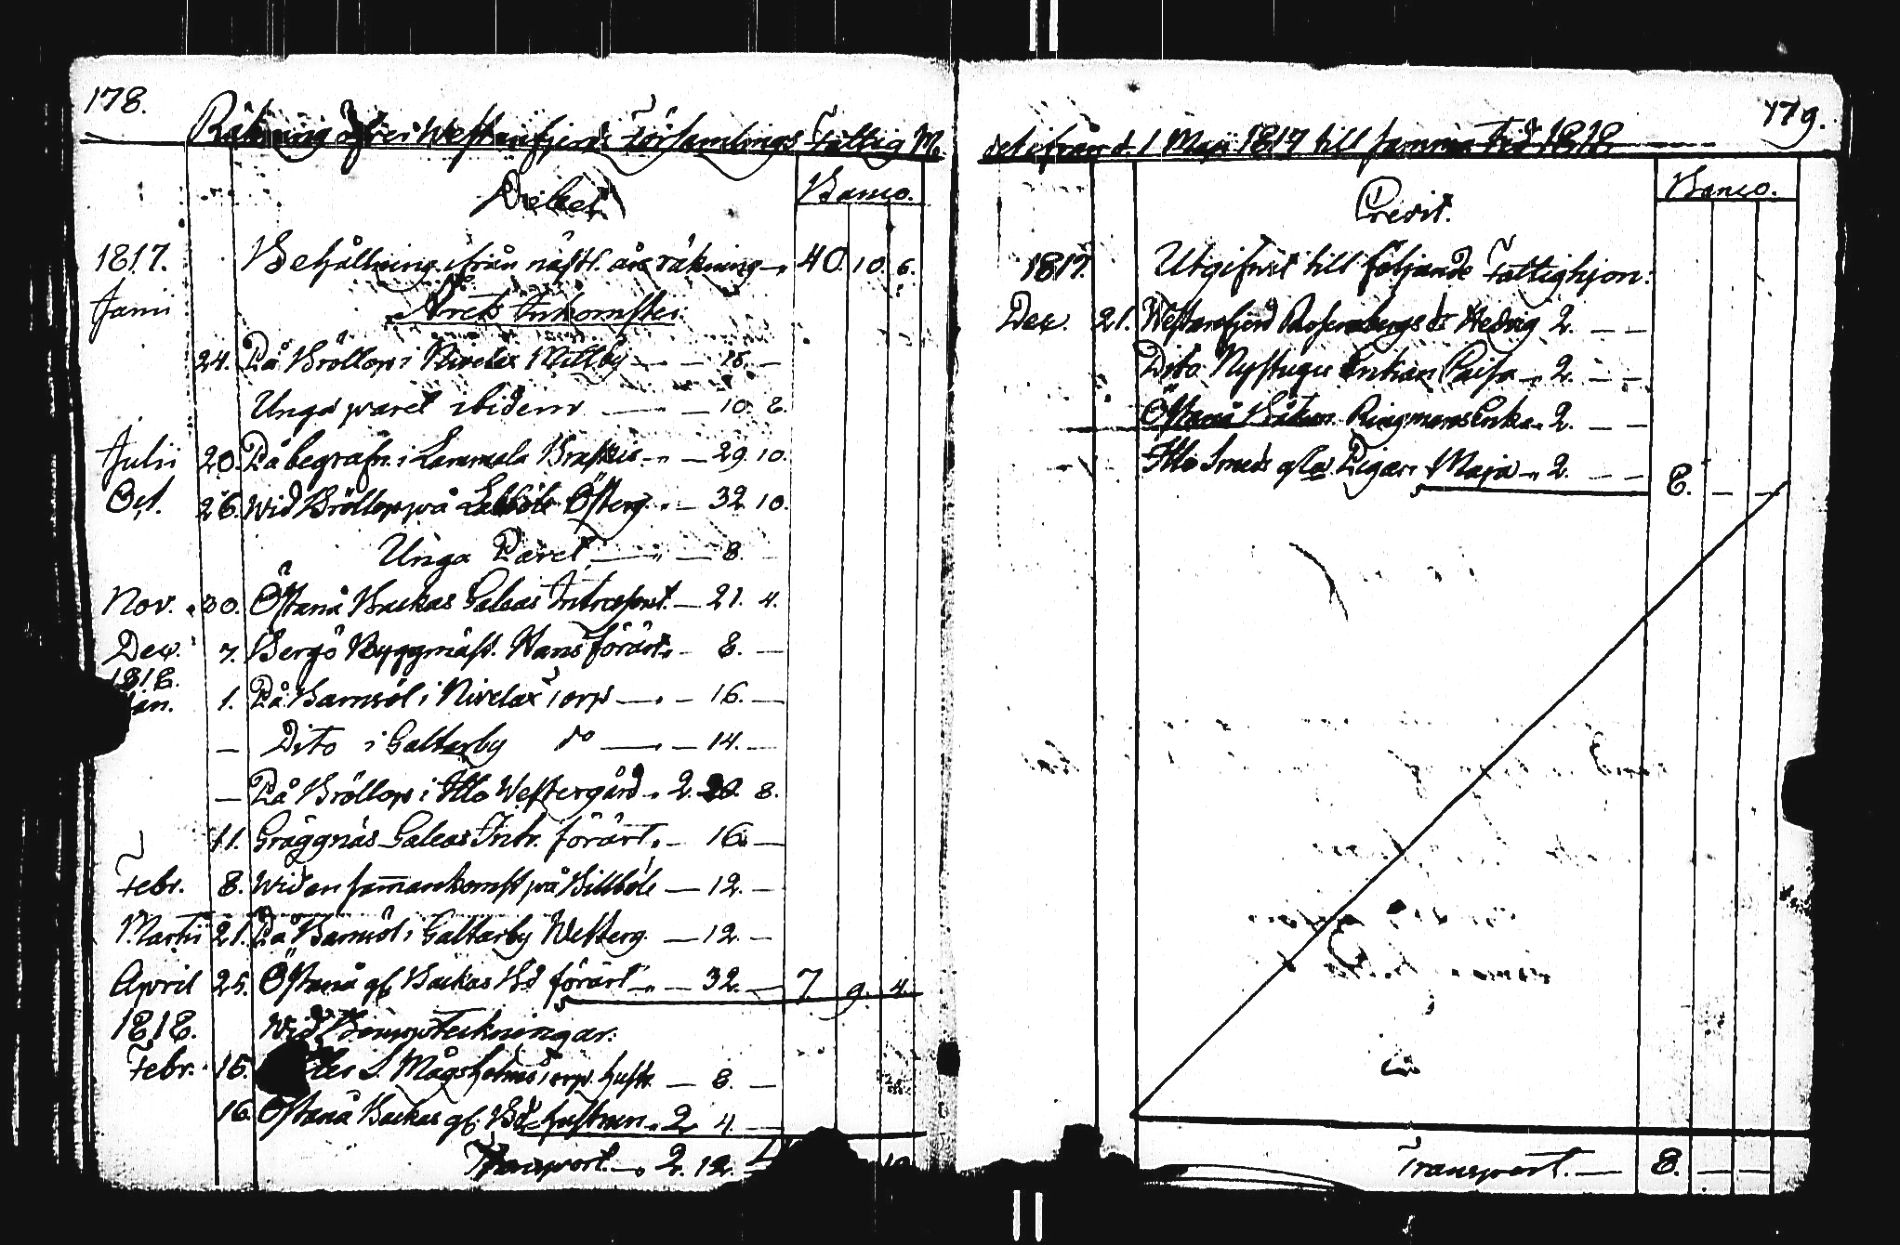 178.
Räkning öfver Westanfjerds Församlings Fattig M.
Debet
Banco.
1817. Behållning ifrån näst. års räkning 40. 10. 6.
Junii Årets Inkomster
24. På Bröllop i Nivelax Millby — 18. —
Unga paret ibidem — 10. 8.
Julii 20. På begrafn. i Lammala — 29. 10.
Oct. 26. Wid Bröllop på Österg. — 32. 10.
Unga Paret — 8. —
Nov. 30. Östanå Backas Galeas — 21. 4.
Dec. 7. Bergö Byggmäst. Hans förärt — 8. —
1818.
Jan. 1. På Barnsöl i Nivelax Torp — 16. —
— Dito i Galtarby do — 14. —
— På Bröllop i Illo Westergård 2. 20. 8.
11. Gräggnäs Galeas Intr. förärt — 16. —
Febr. 8. Wid en sammankomst på Billböle — 12. —
Martii 21. På Barnsöl i Galtarby Westerg. — 12. —
April 25. Östanå gl. Backas Bd förärt — 32. — 7. 9. 4.
1818. Wid
Febr. 15. Mågsholms torp. hustr. — 8. —
16. Östanå Backas gl. Bds hustrun 2. 4. —
Transport 2. 12. —
179.
del ifrån d. 1 Maji 1817 till samma tid 1818
Credit.
Banco.
1817. Utgifvit till följande Fattighjon:
Dec. 21. Westanfjerd Rosenbergs dr Hedvig 2. — —
Dito Nystugu Enkan Caisa 2. — —
Östanå Båtsm. Ringmans Enka 2. — —
Illo Smeds gla Pigan Maja 2. — — 8. — —
Transport. — 8. — —